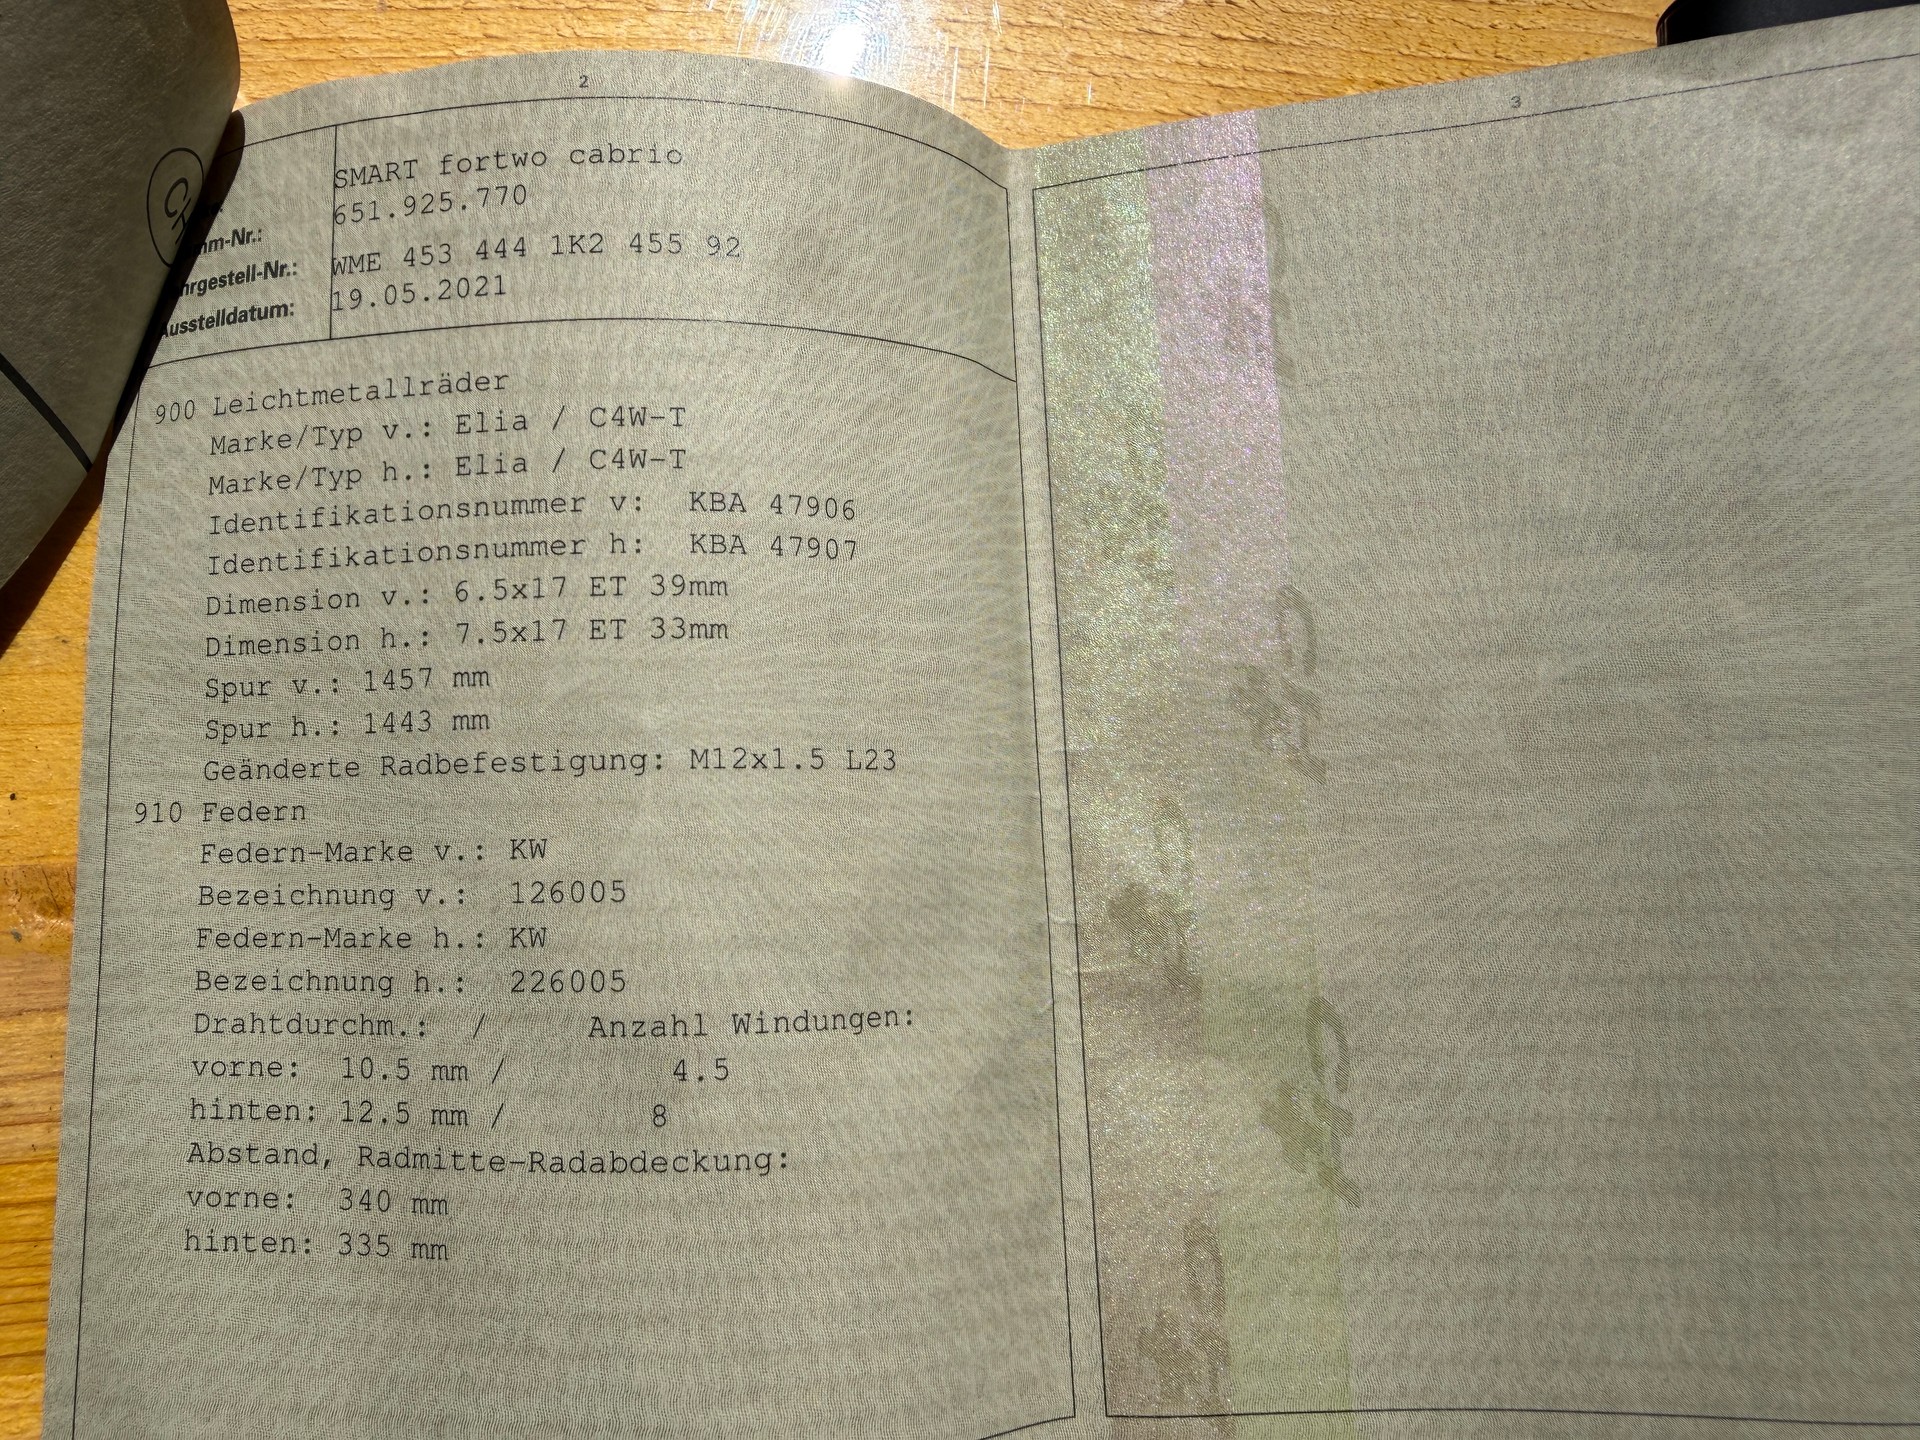 2
SMART fortwo cabrio
651.925.770
WME 453 444 1K2 455 92
Ausstelldatum: 19.05.2021
900 Leichtmetallräder
Marke/Typ v.: Elia / C4W-T
Marke/Typ h.: Elia / C4W-T
Identifikationsnummer v: KBA 47906
Identifikationsnummer h: KBA 47907
Dimension v.: 6.5x17 ET 39mm
Dimension h.: 7.5x17 ET 33mm
Spur v.: 1457 mm
Spur h.: 1443 mm
Geänderte Radbefestigung: M12x1.5 L23
910 Federn
Federn-Marke v.: KW
Bezeichnung v.: 126005
Federn-Marke h.: KW
Bezeichnung h.: 226005
Drahtdurchm.: / Anzahl Windungen:
vorne: 10.5 mm / 4.5
hinten: 12.5 mm / 8
Abstand, Radmitte-Radabdeckung:
vorne: 340 mm
hinten: 335 mm
3